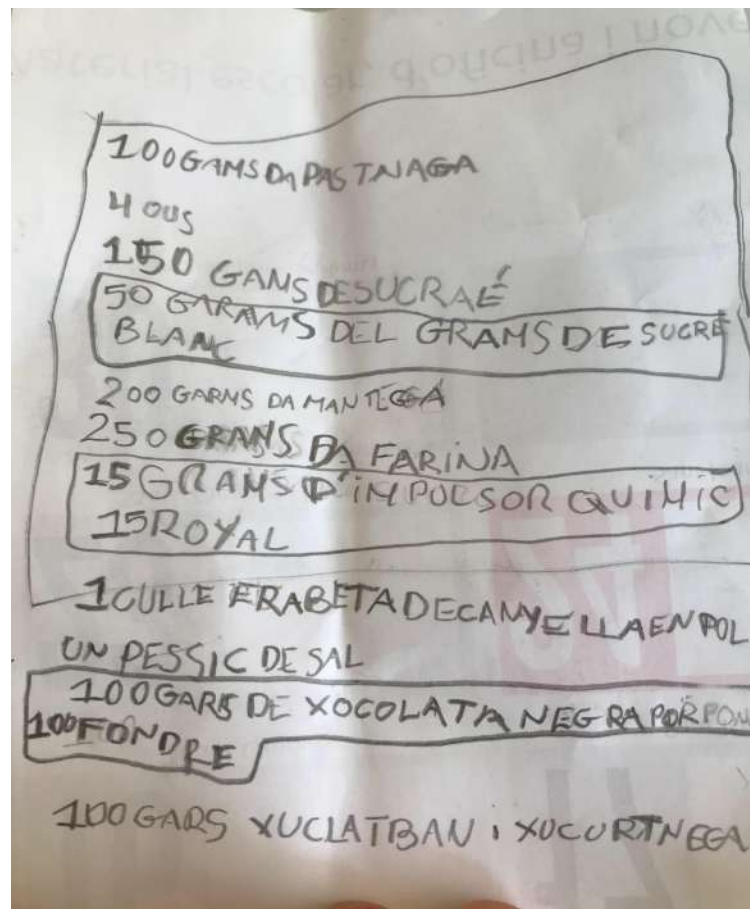 100GAMS DA PASTNAGA
4 OUS
150 GAMS DESUCRAÉ
50 GARAMS DEL GRAMS DE SUCRE
BLANC
200 GARMS DA MANTEGGÁ
250 GRANS DA FARINA
15 GRAMS D'IMPULSOR QUIMIC
15ROYAL
1CULLE ERABETADECANYELLAENPOL
UN PESSIC DE SAL
100GARS DE XOCOLATA NEGRA PORPON
100FONDRE
100GARS XUCLATBAN I XUCURTNEGA